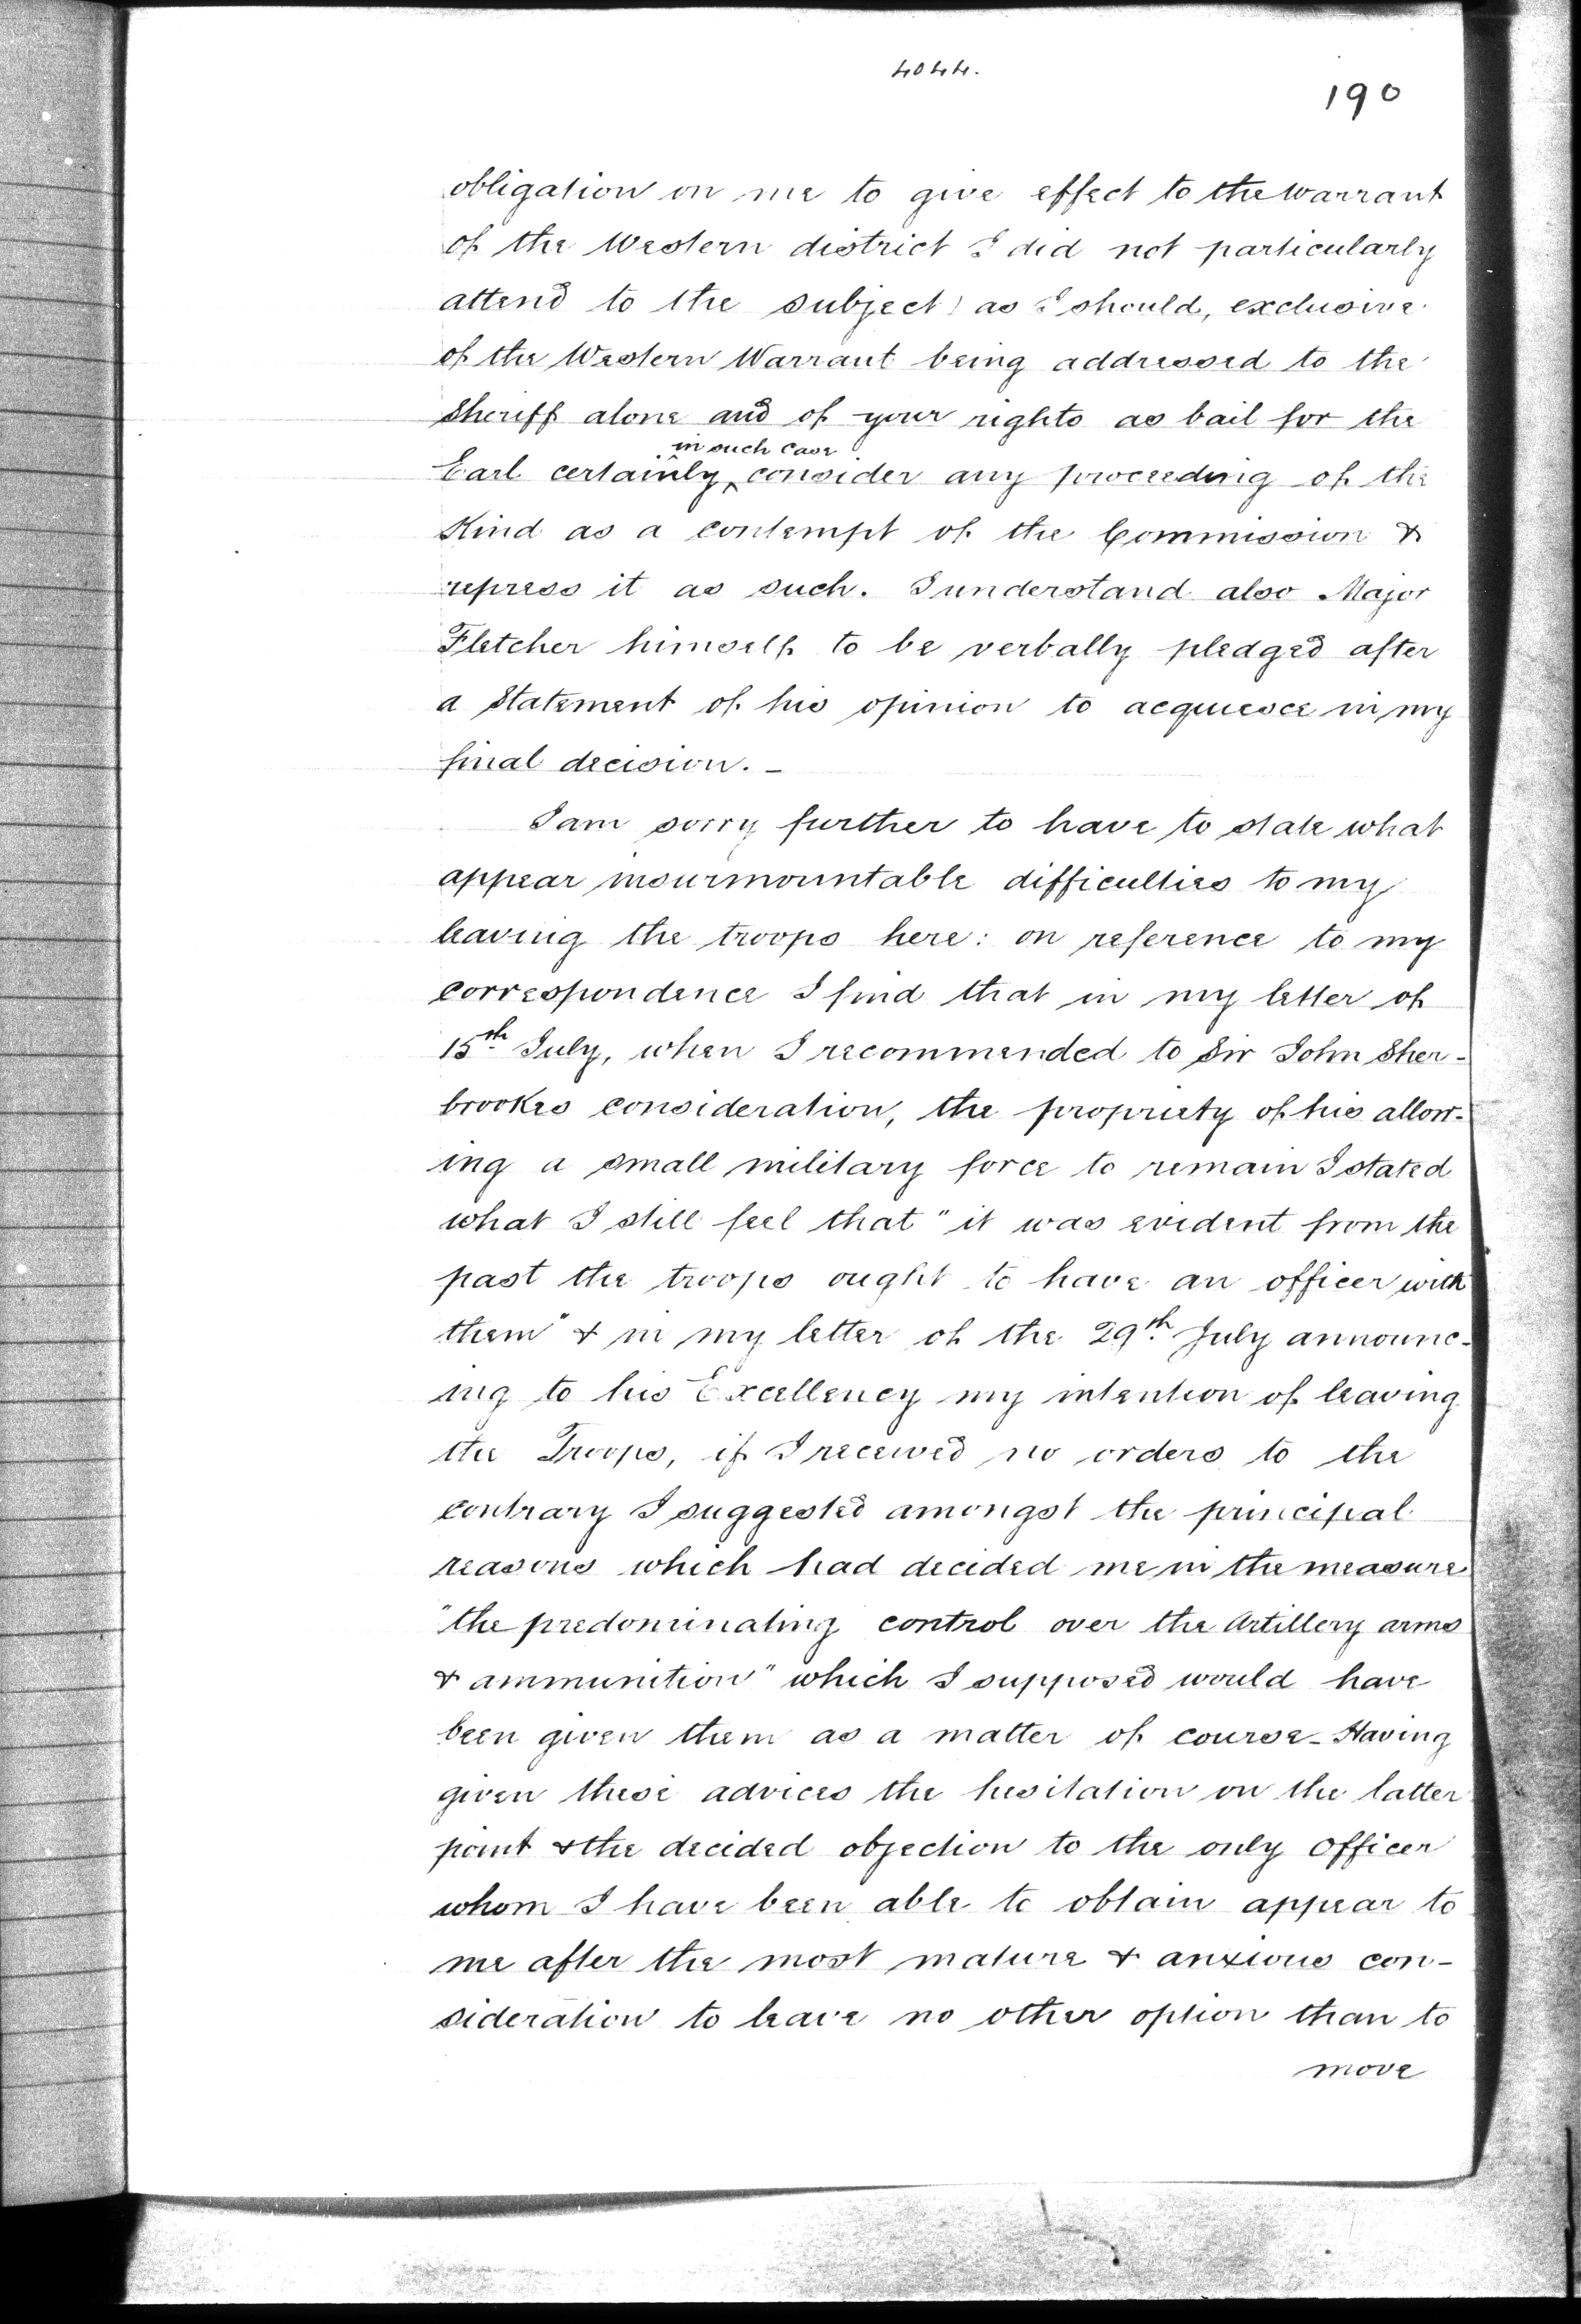 4044.
190
obligation on me to give effect to the Warrant
of the Western district I did not particularly
attend to the subject) as I should, exclusive
of the Western Warrant being addressed to the
Sheriff alone and of your rights as bail for the
in such case
Earl certainly ^ consider any proceeding of the
Kind as a contempt of the Commission &
repress it as such. I understand also Major
Fletcher himself to be verbally pledged after
a Statement of his opinion to acquiesce in my
final decision. –
I am sorry further to have to state what
appear insurmountable difficulties to my
leaving the troops here: on reference to my
correspondence I find that in my letter of
15th July, when I recommended to Sir John Sher-
brookes consideration, the propriety of his allow-
ing a small military force to remain I stated
what I still feel that "it was evident from the
past the troops ought to have an officer with
them" & in my letter of the 29th July announc-
ing to his Excellency my intention of leaving
the Troops, if I received no orders to the
contrary I suggested amongst the principal
reasons which had decided me in the measure
"the predominating control over the Artillery arms
& ammunition" which I supposed would have
been given them as a matter of course – Having
given these advices the hesitation on the latter
point & the decided objection to the only Officer
whom I have been able to obtain appear to
me after the most mature & anxious con-
sideration to leave no other option than to
move